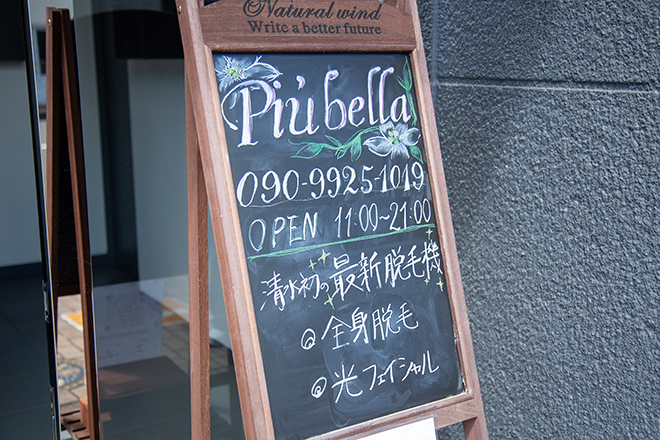 Natural wind
Write a better future
Più bella
090-9925-1019
OPEN 11:00~21:00
清水初の最新脱毛機
◎全身脱毛
◎光フェイシャル